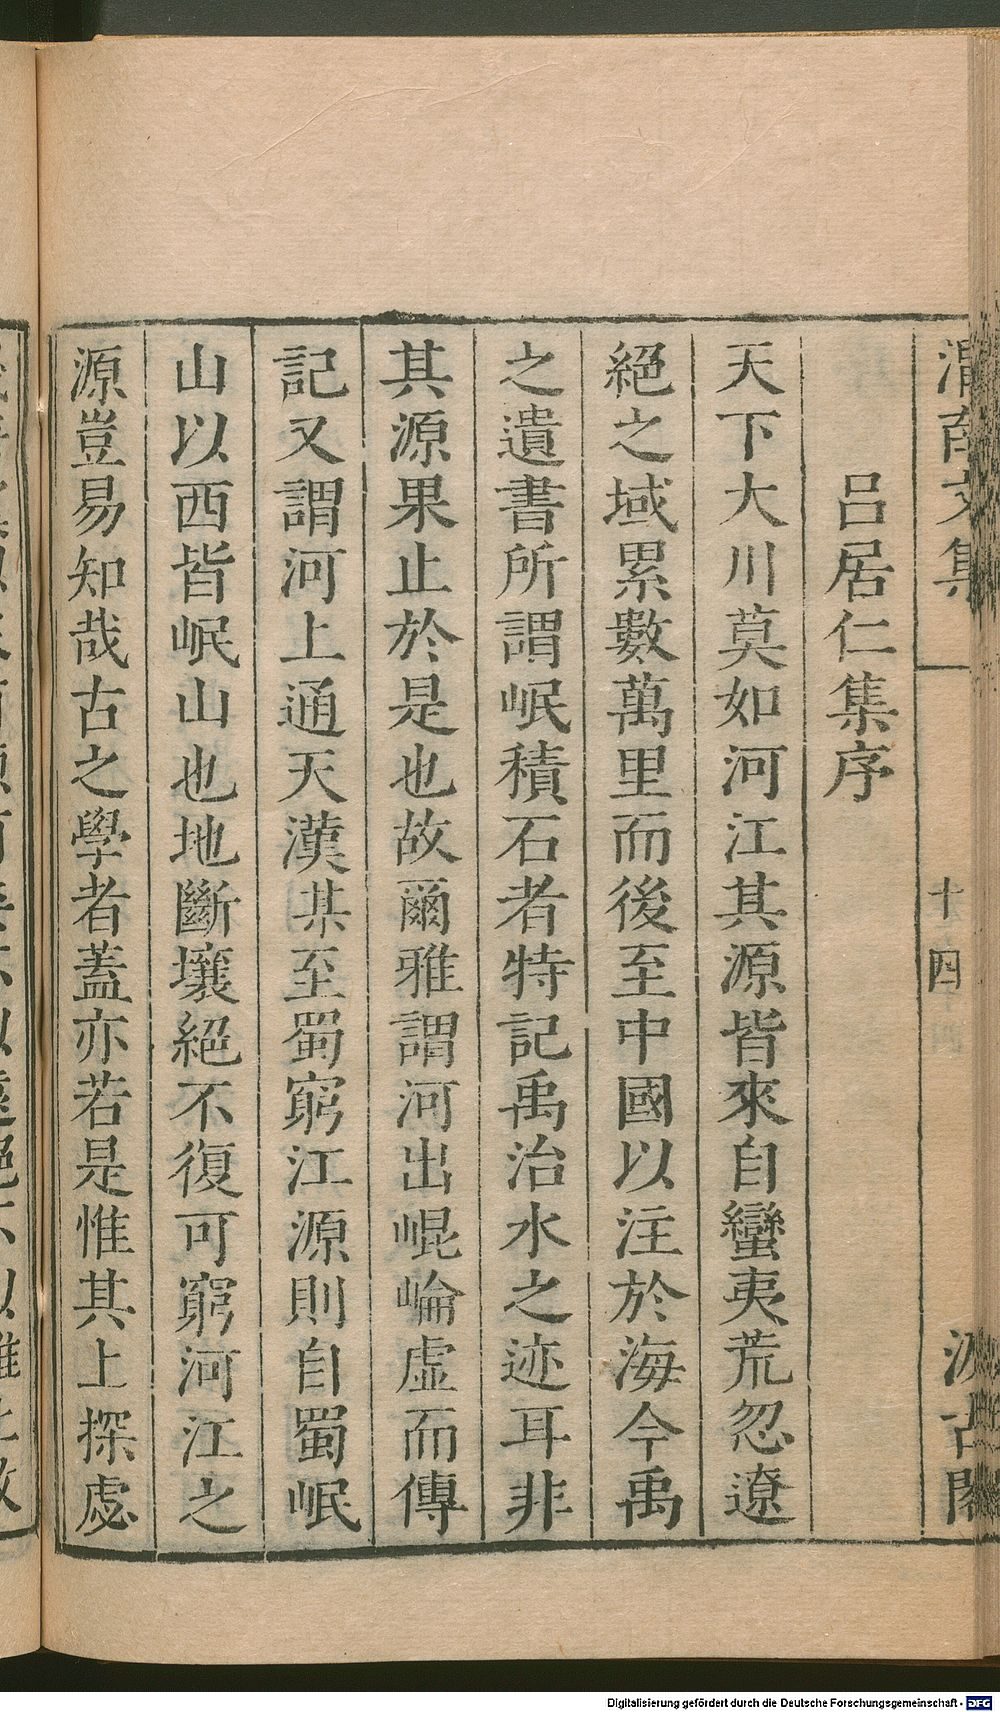 渭南文集
十四
汲古閣
呂居仁集序
天下大川莫如河江其源皆來自蠻夷荒忽遼
絕之域累數萬里而後至中國以注於海今禹
之遺書所謂岷積石者特記禹治水之迹耳非
其源果止於是也故爾雅謂河出崐崘虛而傳
記又謂河上通天漢某至蜀窮江源則自蜀岷
山以西皆岷山也地斷壤絕不復可窮河江之
源豈易知哉古之學者蓋亦若是惟其上探處
Digitalisierung gefördert durch die Deutsche Forschungsgemeinschaft - DFG